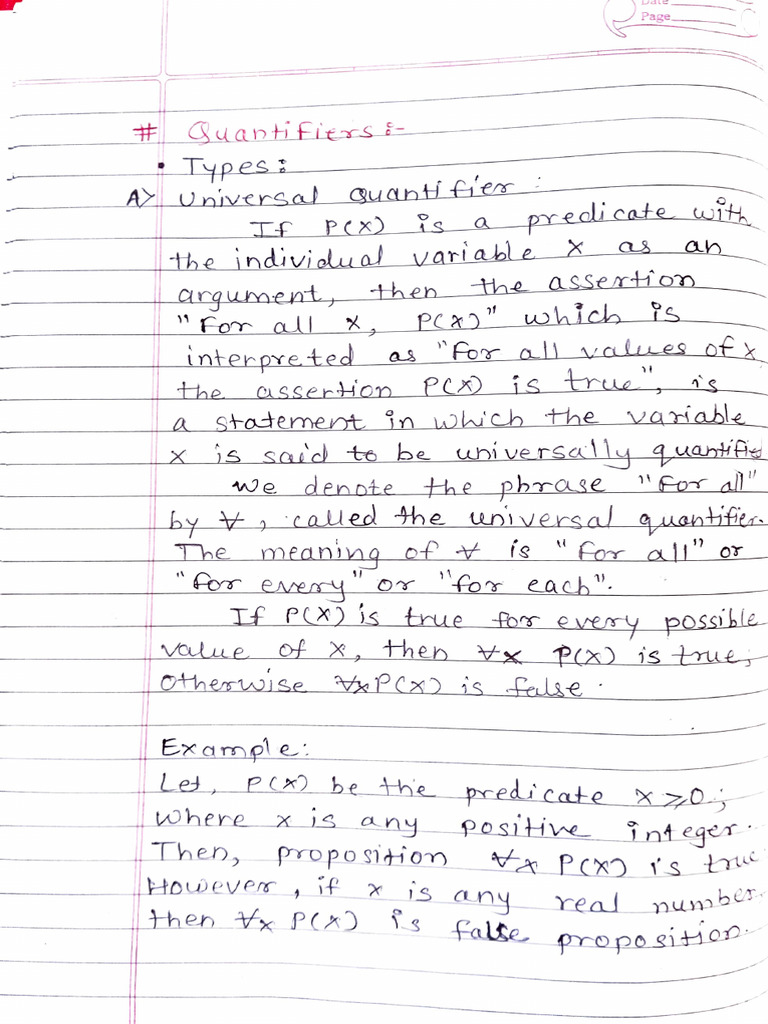 Date
Page
# Quantifiers :-
• Types :
A> Universal Quantifier :
If P(x) is a predicate with
the individual variable x as an
argument, then the assertion
"For all x, P(x)" which is
interpreted as "For all values of x
the assertion P(x) is true", is
a statement in which the variable
x is said to be universally quantifie
We denote the phrase "For all"
by ∀, called the universal quantifier.
The meaning of ∀ is "for all" or
"for every" or "for each".
If P(x) is true for every possible
value of x, then ∀x P(x) is true;
Otherwise ∀x P(x) is false.
Example:
Let, P(x) be the predicate x ⩾ 0 ;
Where x is any positive integer.
Then, proposition ∀x P(x) is true
However, if x is any real number.
then ∀x P(x) is false proposition.